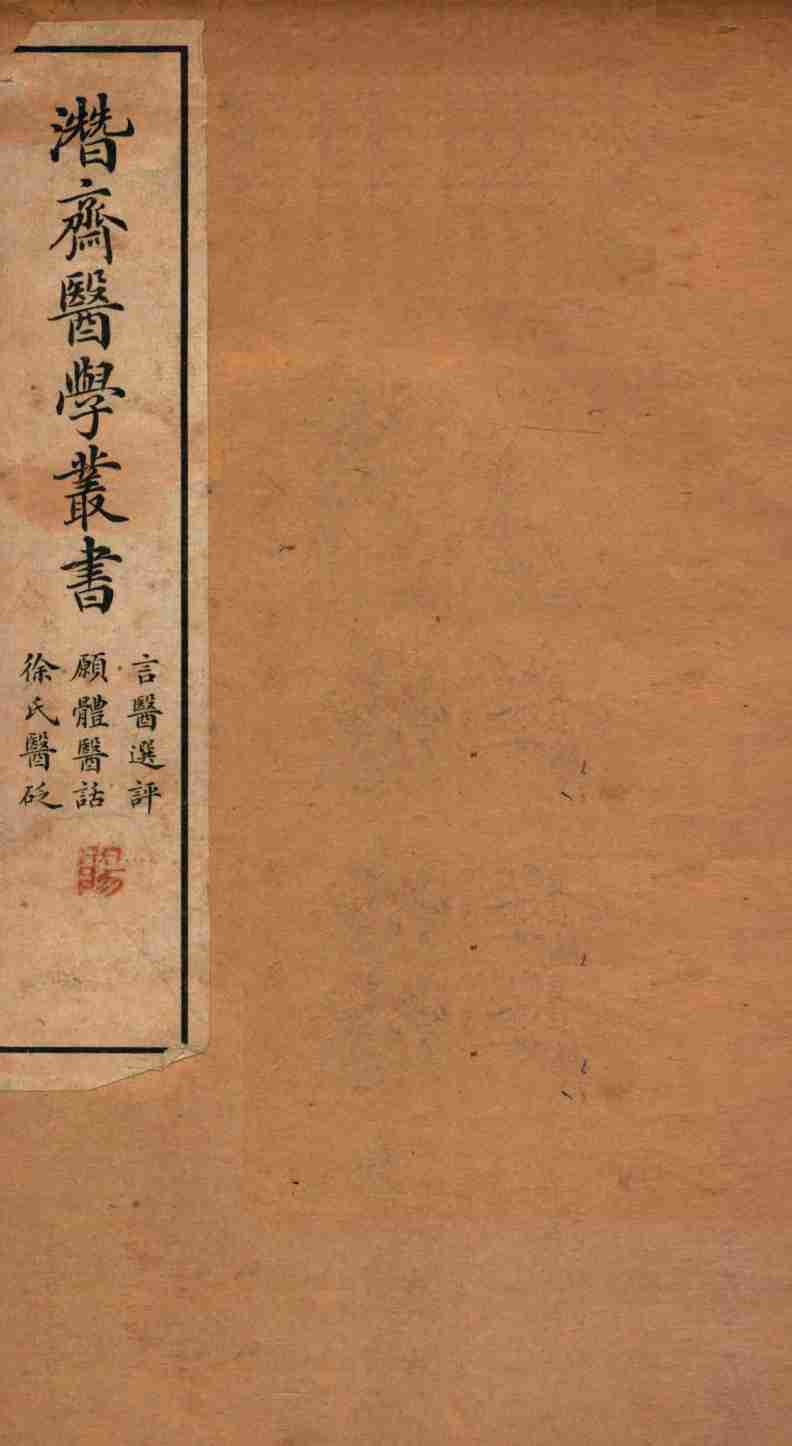 潛齋醫學叢書
言醫選評
願體醫話
徐氏醫砭